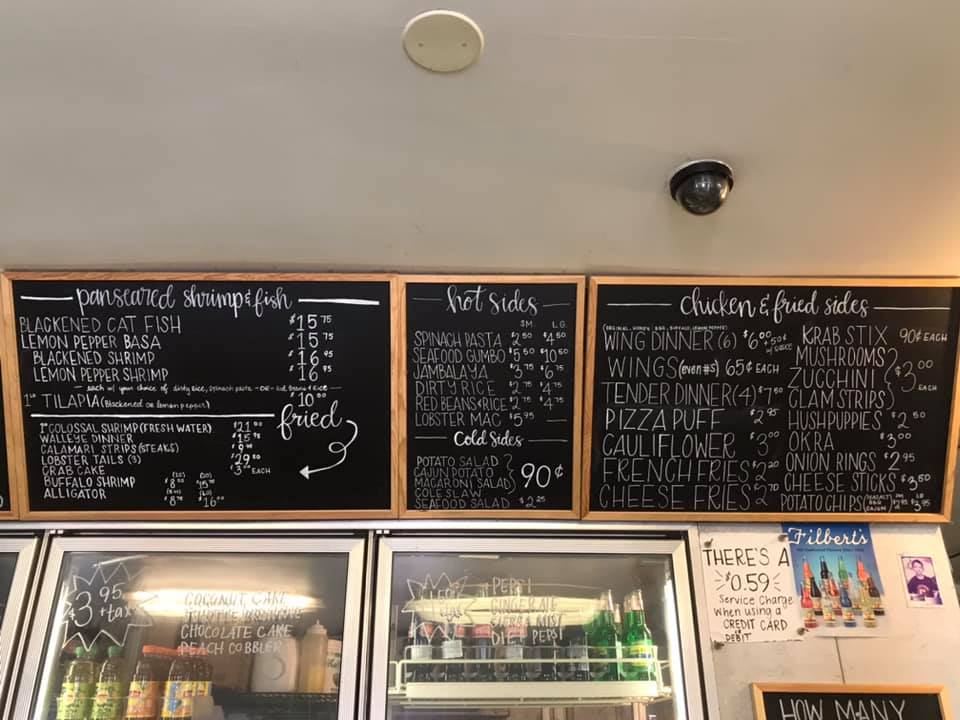 panseared shrimp & fish
BLACKENED CAT FISH $15 75
LEMON PEPPER BASA $15 75
BLACKENED SHRIMP $16 95
LEMON PEPPER SHRIMP $16 95
each w/ your choice of dirty rice, spinach pasta -OR- Red Beans & Rice
TILAPIA (Blackened or lemon pepper) $10 00
fried
COLOSSAL SHRIMP (FRESH WATER) $21
WALLEYE DINNER $15
CALAMARI STRIPS (STEAKS) $9
LOBSTER TAILS (3) $29
CRAB CAKE $3 EACH
BUFFALO SHRIMP $8 $15
ALLIGATOR $8 $16
hot sides
SM. LG.
SPINACH PASTA $2 50 $4 50
SEAFOOD GUMBO $5 50 $10 50
JAMBALAYA $3 75 $6 75
DIRTY RICE $2 75 $4 75
RED BEANS & RICE $2 75 $4 75
LOBSTER MAC $5 95
Cold Sides
POTATO SALAD
CAJUN POTATO
MACARONI SALAD
COLESLAW
90¢
SEAFOOD SALAD $2.25
chicken & fried sides
(ORIGINAL, HONEY BBQ, BUFFALO, LEMON PEPPER)
WING DINNER (6) $6.00 +50¢ w/ SAUCE
WINGS (even #s) 65¢ EACH
TENDER DINNER (4) $7 50
PIZZA PUFF $2 95
CAULIFLOWER $3 00
FRENCH FRIES $2 20
CHEESE FRIES $2 70
KRAB STIX 90¢ EACH
MUSHROOMS
ZUCCHINI
CLAM STRIPS
$3 00 EACH
HUSHPUPPIES $2 50
OKRA $3 00
ONION RINGS $2 95
CHEESE STICKS $3 50
POTATO CHIPS
$3 95 +tax
COCONUT CAKE
CHOCOLATE CAKE
PEACH COBBLER
PEPSI
GINGER ALE
SIERRA MIST
DIET PEPSI
THERE'S A
$0.59
Service Charge
When using a
CREDIT CARD
or
DEBIT
Filbert's
HOW MANY